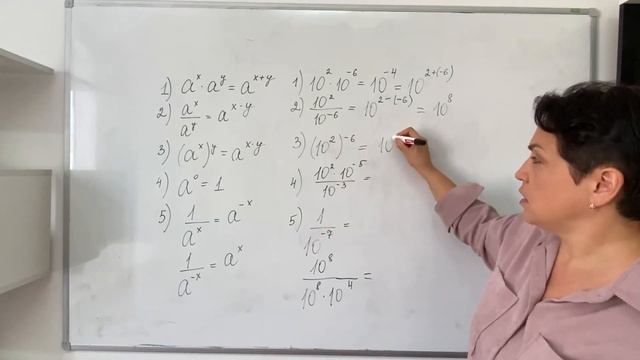 1) aˣ · aʸ = aˣ⁺ʸ
2) aˣ / aʸ = aˣ⁻ʸ
3) (aˣ)ʸ = aˣ·ʸ
4) a⁰ = 1
5) 1 / aˣ = a⁻ˣ
1 / a⁻ˣ = aˣ
1) 10² · 10⁻⁶ = 10⁻⁴ = 10²⁺⁽⁻⁶⁾
2) 10² / 10⁻⁶ = 10²⁻⁽⁻⁶⁾ = 10⁸
3) (10²)⁻⁶ = 10
4) 10² · 10⁻⁵ / 10⁻³ =
5) 1 / 10⁻⁷ =
10⁸ / 10⁸ · 10⁴ =